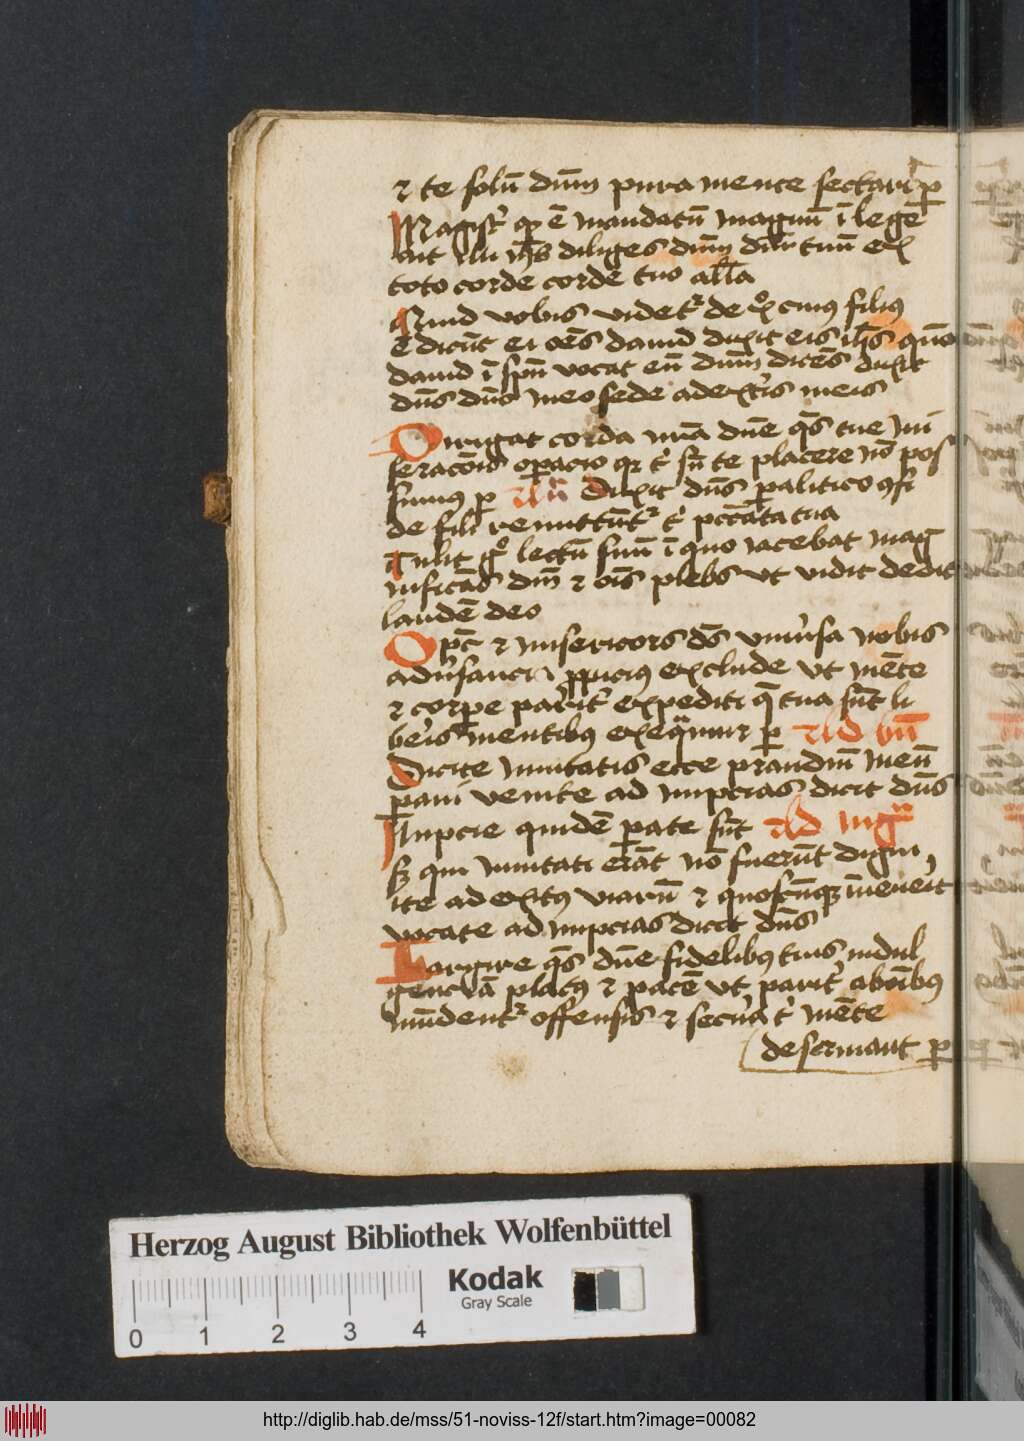 ⁊ te solū dūm pura mente sectari p̲
Magistˀ qͥ ē mandatū magnū ī lege
ait illi ih̄s diliges dūm dūm tuū ex
toto corde corde tuo all̄a
Quid vobis videtˀ de xͦ cuius filius
ē dicūt ei oēs dauid dixit eis ih̄s quō
dauid ī sp̄u vocat eū dūm dicēs dixit
dn̄s dn̄o meo sede a dextˀis meis
Dirigat corda nr̄a dn̄e qs̄ tue mi
seracōis operacio qꝛ tˀ sn̄ te placere nō pos
sumus p̲ Ad bn̄ Dixit dn̄s paralitico cōfi
de fili remittūtˀ tˀ pccāta tua
Tulit gͦ lectū suū ī quo iacebat mag
nificās dm̄ ⁊ oīs plebs vt vidit dedit
laudē deo
Opc̄ ⁊ misericors ds̄ vniuˀsa nobis
aduˀsanci ppicius exclude vt mēte
⁊ corpe paritˀ expediti q̄ tua sūt li
beris mentibus exequamur p̲ Ad bn̄
Dicite inuitatis ecce prandiū meū
paui venite ad nupcias dicit dn̄s
Nupcie quidē parate sūt Ad mgͣ
sꝫ qui inuitati erāt nō fuerūt digni,
ite ad exitus viarū ⁊ quoscūqꝫ īueneˀit
vocate ad nupcias dicit dn̄s
Largire qs̄ dn̄e fidelibus tuis indul
genciā placatus ⁊ pacē vt paritˀ ab oībus
mūdentˀ offensis ⁊ secuˀa tˀ mēte
deseruiant p̲
Herzog August Bibliothek Wolfenbüttel
Kodak
Gray Scale
0 1 2 3 4
http://diglib.hab.de/mss/51-noviss-12f/start.htm?image=00082